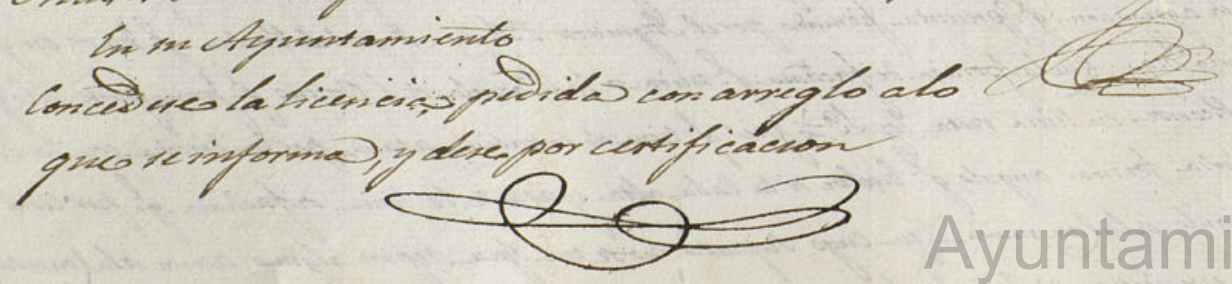 En su Ayuntamiento
Concedese la licencia, pedida con arreglo alo
que se informa, y dese por certificacion
Ayuntami